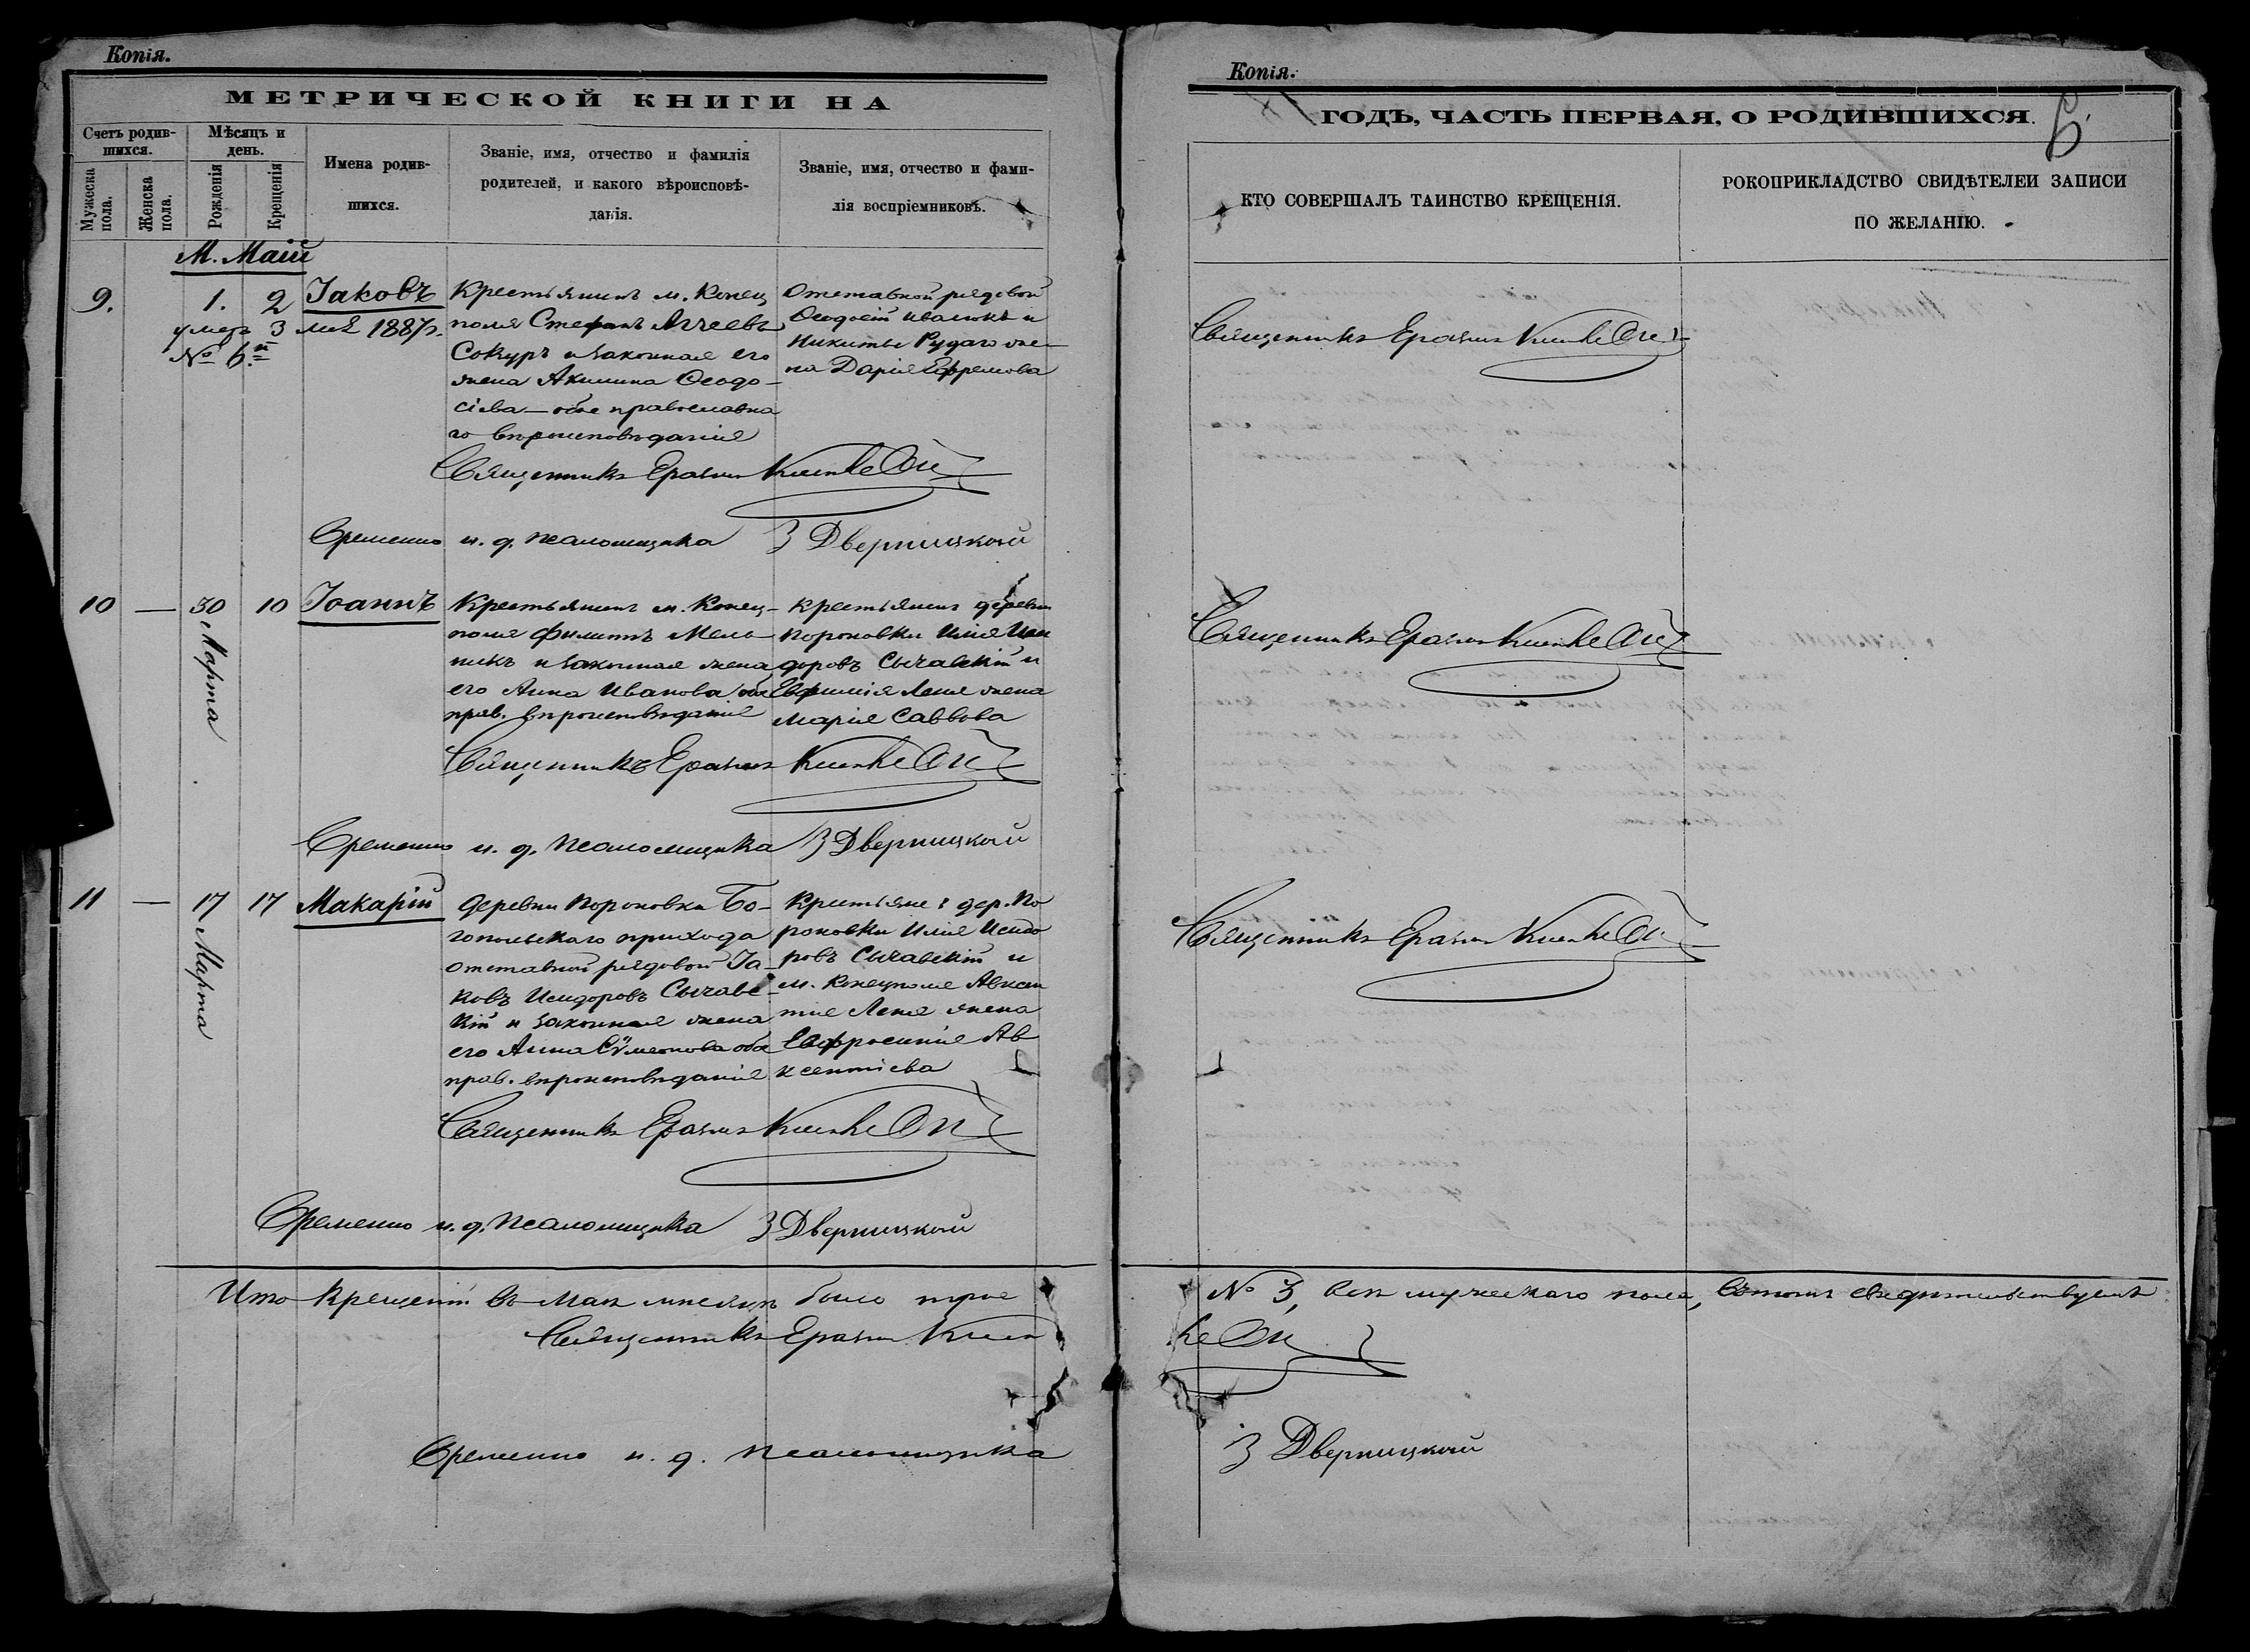 Копія.
МЕТРИЧЕСКОЙ КНИГИ НА
Счетъ родив-
шихся.
Мѣсяцъ и
день.
Мужеска
пола.
Женска
пола.
Рожденія
Крещенія
Имена родив-
шихся.
Званіе, имя, отчество и фамилія
родителей, и какого вѣроисповѣ-
данія.
Званіе, имя, отчество и фами-
лія воспріемниковъ.
М. Маій
9. 1. 2 Іаковъ
умеръ 3 мая 1887г.
№ 6.й
Крестьянинъ м. Конец
поля Стефанъ
Сокуръ и законная его
жена Акилина Ѳеодо-
сіева — оба православна
го вѣроисповѣданія
Отставной рядовой
Ѳеодосій Ивалюкъ и
Никиты Рудаго же-
на Дарія Ефремова
Священникъ
Временно и. д. псаломщика З Дверницкий
10 — 30 Марта 10 Іоаннъ
Крестьянинъ м. Конец-
поля Филиппъ Мель-
никъ и законная жена
его Анна Иванова оба
прав. вѣроисповѣданія
Крестьянинъ деревни
Пороховки Илія Иси
доровъ Сычавскій и
Евфимія Леня жена
Марія Саввова
Священникъ
Временно и. д. псаломщика З Дверницкий
11 — 17 Марта 17 Макарій
Деревни Пороховки Бо-
гопольскаго прихода
отставной рядовой Іа-
ковъ Исидоровъ Сычавс-
кій и законная жена
его Анна Сѵмеонова оба
прав. вѣроисповѣданія
Крестьяне: дер. По
роховки Илія Исидо
ровъ Сычавскій и
м. Конецполя Авксен
тія Леня жена
Евфросинія Ав
ксентіева
Священникъ
Временно и. д. псаломщика З Дверницкий
Итого крещеній въ маѣ мѣсяцѣ было трое
Священникъ
Временно и. д. псаломщика
Копія.
ГОДЪ, ЧАСТЬ ПЕРВАЯ, О РОДИВШИХСЯ.
6.
КТО СОВЕРШАЛЪ ТАИНСТВО КРЕЩЕНІЯ.
РОКОПРИКЛАДСТВО СВИДѢТЕЛЕИ ЗАПИСИ
ПО ЖЕЛАНІЮ.
Священникъ
Священникъ
Священникъ
№ 3, всѣ мужескаго пола, въ томъ свидѣтельствуемъ
З Дверницкий